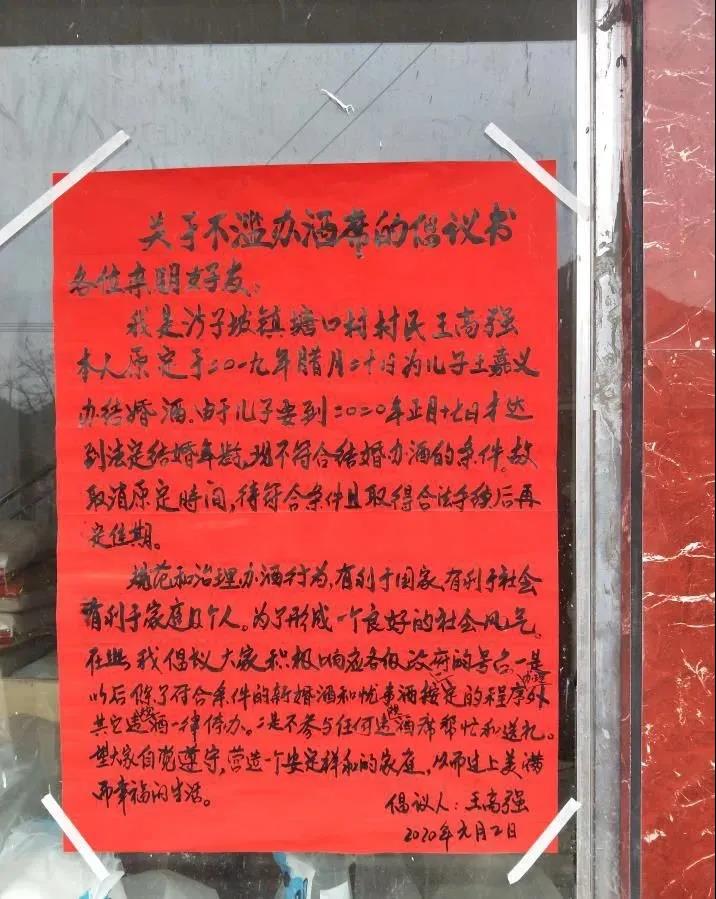 关于不滥办酒席的倡议书
各位亲朋好友:
我是沙子坡镇塘口村村民王高强
本人原定于二〇一九年腊月二十日为儿子王嘉义
办结婚酒。由于儿子要到二〇二〇年正月十七日才达
到法定结婚年龄,现不符合结婚办酒的条件。故
取消原定时间,待符合条件且取得合法手续后再
定佳期。
规范和治理办酒行为,有利于国家,有利于社会
有利于家庭及个人。为了形成一个良好的社会风气。
在此,我倡议大家积极响应各级政府的号召,一是
以后除了符合条件的新婚酒和忧事酒按定的程序办理外
其它违规酒一律停办。二是不参与任何违规酒席帮忙和送礼。
望大家自觉遵守,营造一个安定祥和的家庭,从而过上美满
而幸福的生活。
倡议人:王高强
2020年元月2日